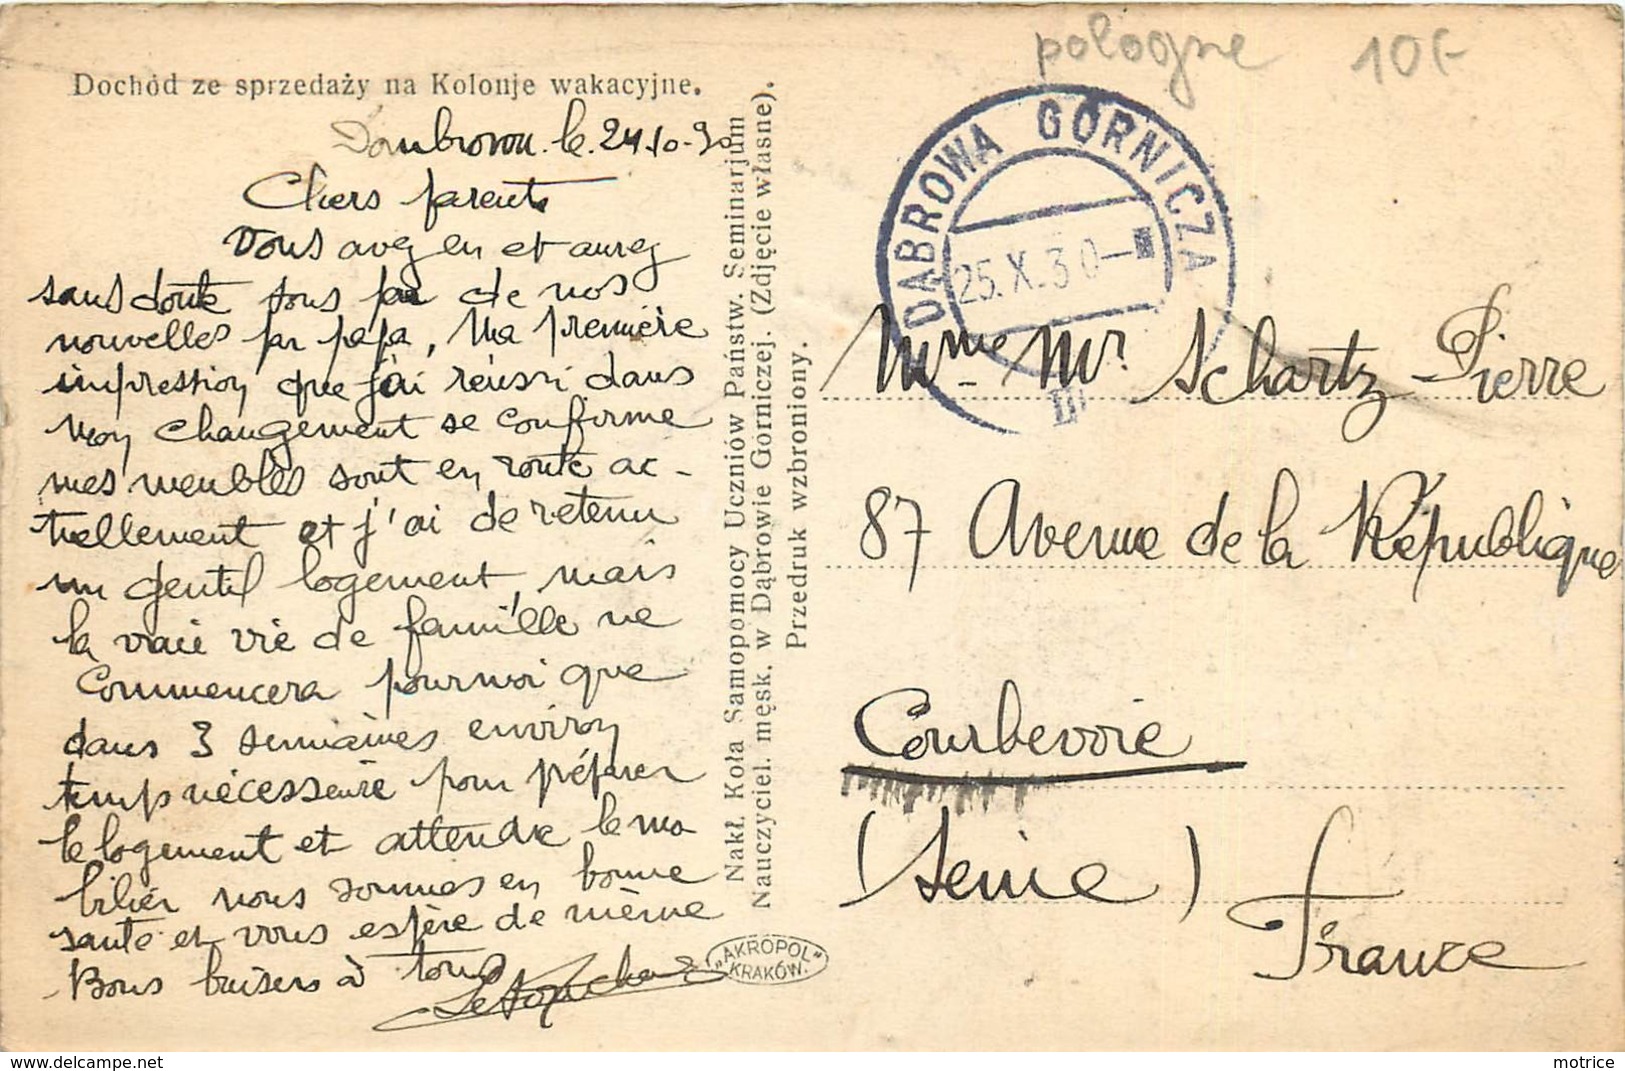 pologne 10F
Dochód ze sprzedaży na Kolonje wakacyjne.
Dombrowa le 24.10-30
Chers parents
Vous avez en et aurez
sans doute tous par de nos
nouvelles par papa, Ma première
impression que j'ai réussi dans
mon changement se confirme
mes meubles sont en route ac-
tuellement et j'ai de retenu
un gentil logement, mais
la vraie vie de famille ne
Commencera pour moi que
dans 3 semaines environ
temps nécessaire pour préparer
le logement et attendre le mo
bilier nous sommes en bonne
santé et vous espère de même
Bons baisers à tous
Nakł. Koła Samopomocy Uczniów Państw. Seminarjum
Nauczyciel. męsk. w Dąbrowie Gorniczej. (Zdjęcie własne).
Przedruk wzbroniony.
"AKROPOL"
KRAKÓW.
DĄBROWA GÓRNICZA
25.X.30
Mme Mr Schartz Pierre
87 Avenue de la République
Courbevoie
(Seine)
France
www.delcampe.net
motrice